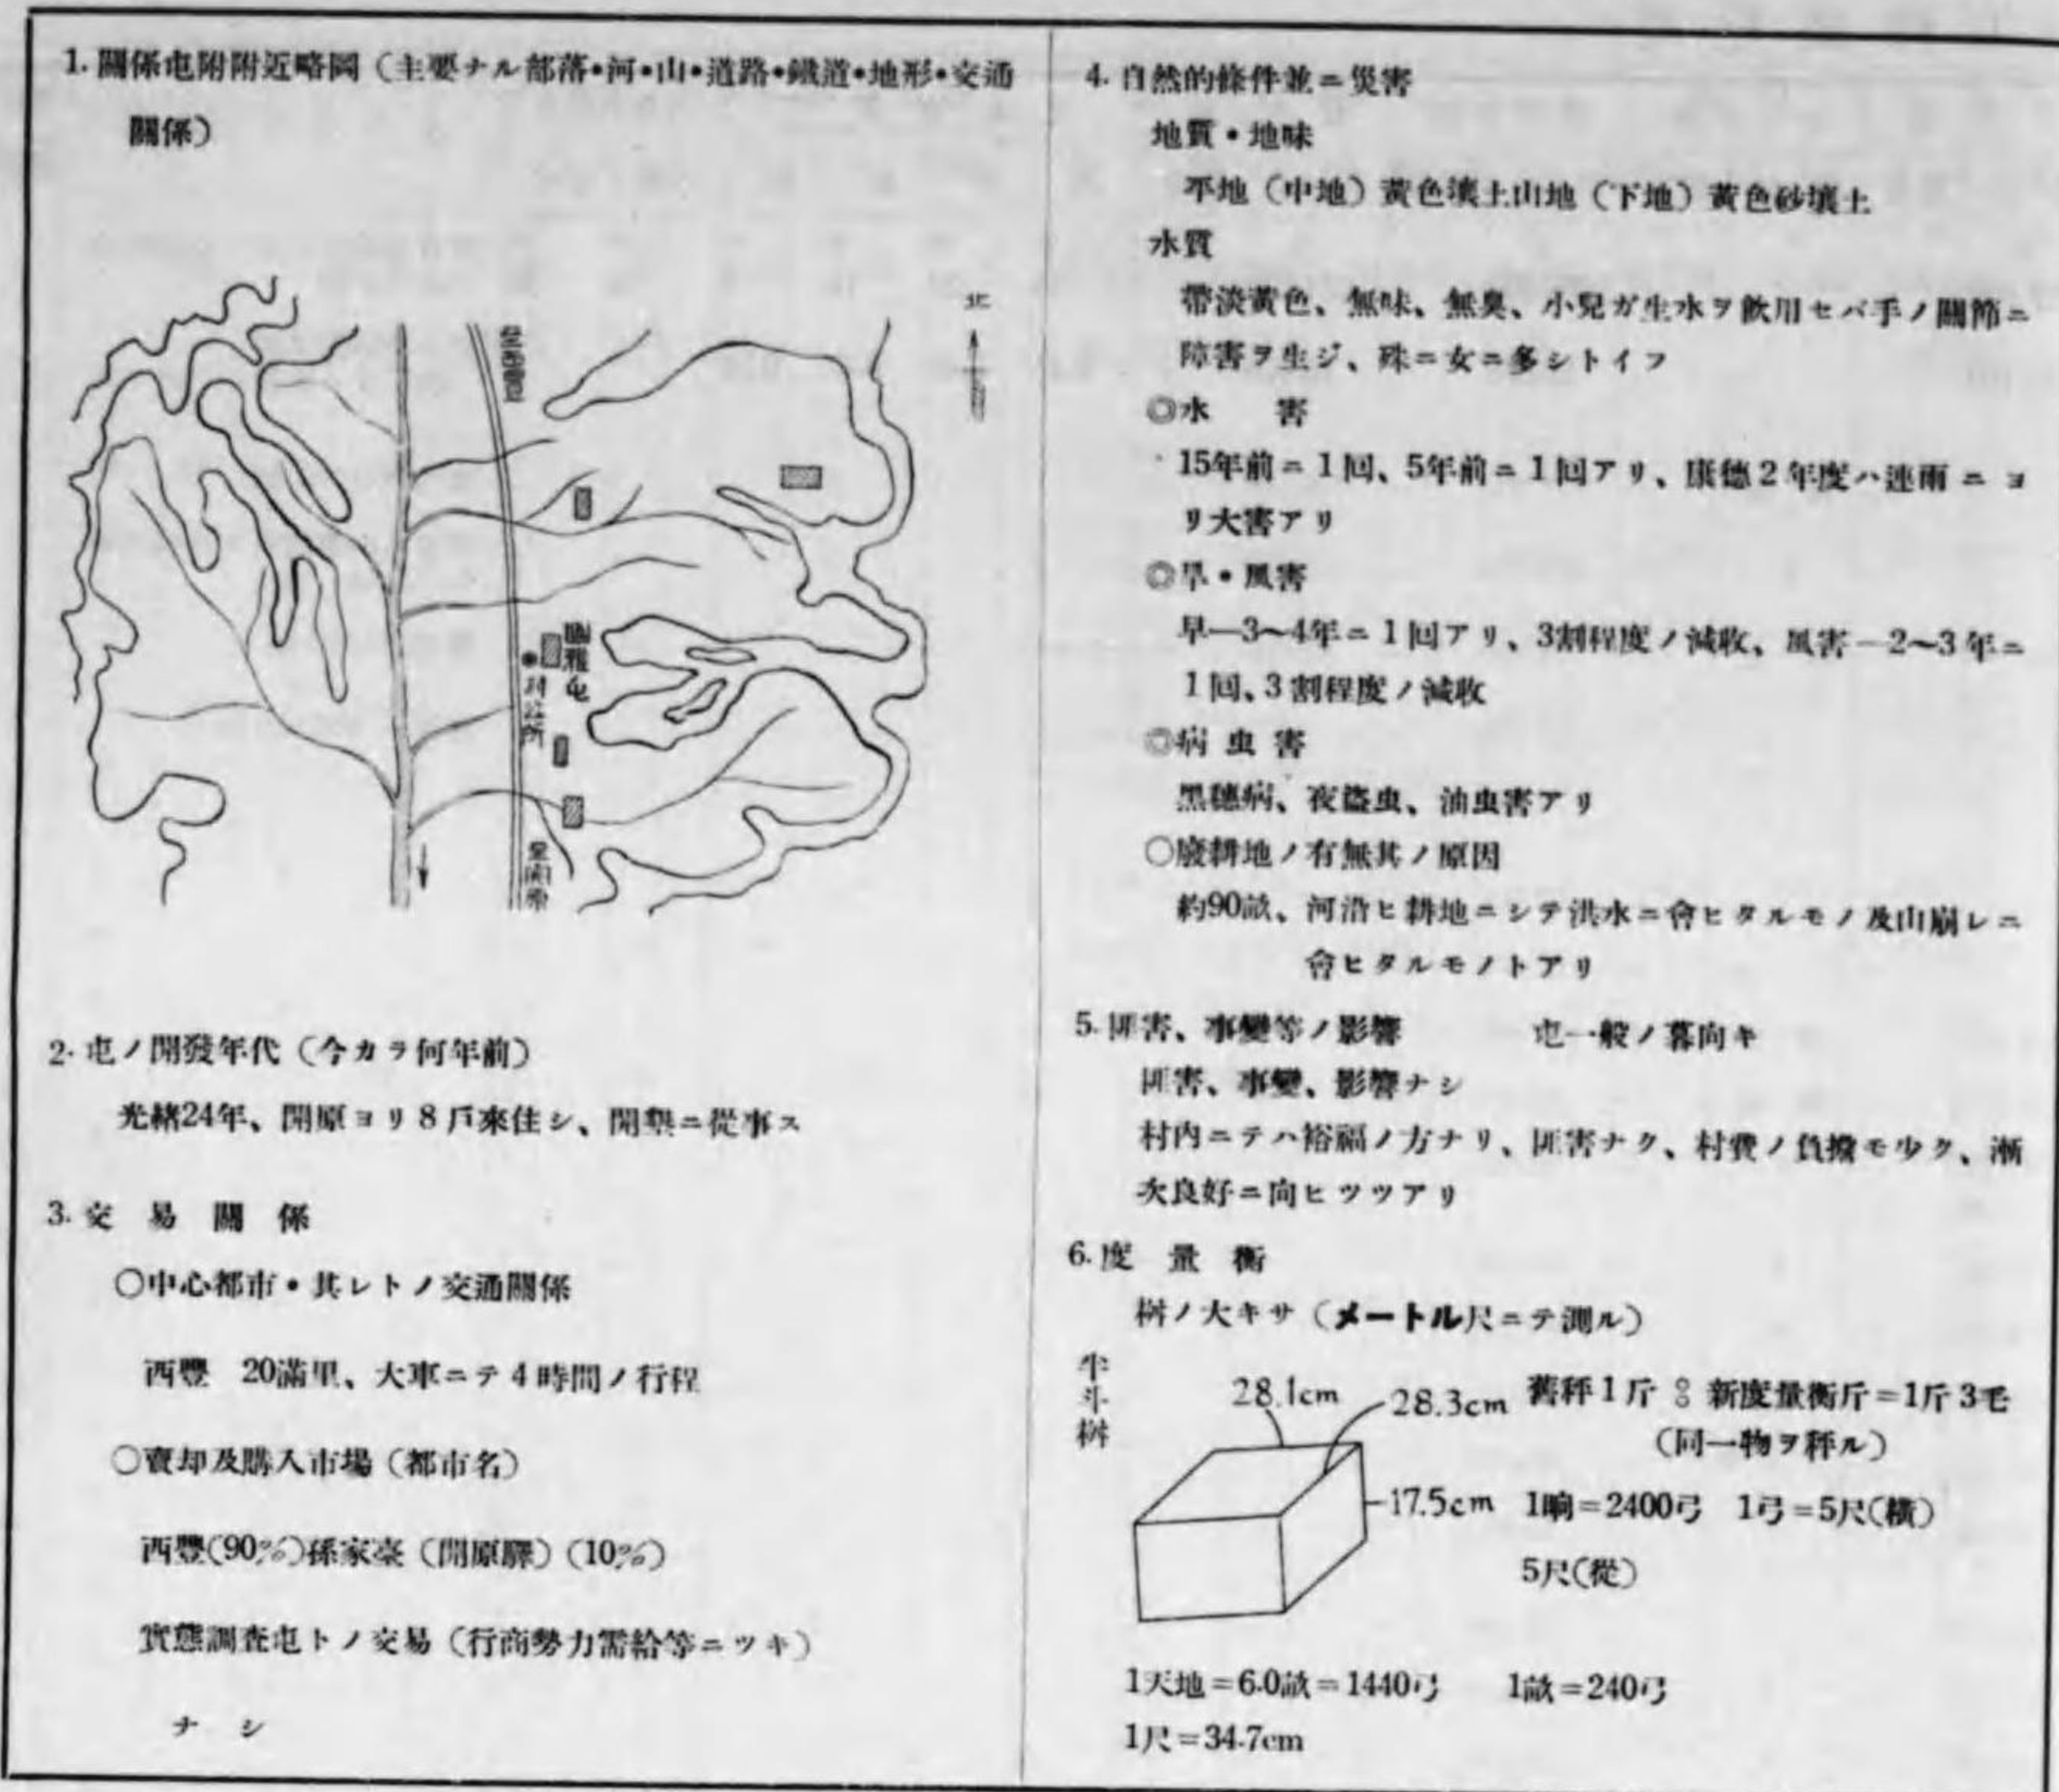 1. 關係屯附附近略圖（主要ナル部落•河•山•道路•鐵道•地形•交通
關係）
北
至西豐
屯
村公所
至開原
2. 屯ノ開發年代（今カラ何年前）
光緖24年、開原ヨリ8戶來住シ、開墾ニ從事ス
3. 交易關係
○中心都市•其レトノ交通關係
西豐 20滿里、大車ニテ4時間ノ行程
○賣却及購入市場（都市名）
西豐(90%)孫家臺（開原驛）(10%)
實態調査屯トノ交易（行商勢力需給等ニツキ）
ナシ
4. 自然的條件並ニ災害
地質•地味
平地（中地）黃色壤土山地（下地）黃色砂壤土
水質
帶淡黃色、無味、無臭、小兒ガ生水ヲ飮用セバ手ノ關節ニ
障害ヲ生ジ、殊ニ女ニ多シトイフ
◎水 害
15年前ニ1回、5年前ニ1回アリ、康德2年度ハ連雨ニヨ
リ大害アリ
◎旱•風害
旱—3~4年ニ1回アリ、3割程度ノ減收、風害—2~3年ニ
1回、3割程度ノ減收
◎病虫害
黑穗病、夜盜虫、油虫害アリ
○廢耕地ノ有無其ノ原因
約90畝、河沿ヒ耕地ニシテ洪水ニ會ヒタルモノ及山崩レニ
會ヒタルモノトアリ
5. 匪害、事變等ノ影響 屯一般ノ暮向キ
匪害、事變、影響ナシ
村內ニテハ裕福ノ方ナリ、匪害ナク、村費ノ負擔モ少ク、漸
次良好ニ向ヒツツアリ
6. 度量衡
桝ノ大キサ（メートル尺ニテ測ル）
半斗桝
28.1cm
28.3cm
17.5cm
舊秤1斤：新度量衡斤＝1斤3毛
（同一物ヲ秤ル）
1晌＝2400弓 1弓＝5尺(橫)
5尺(從)
1天地＝6.0畝＝1440弓 1畝＝240弓
1尺＝34.7cm